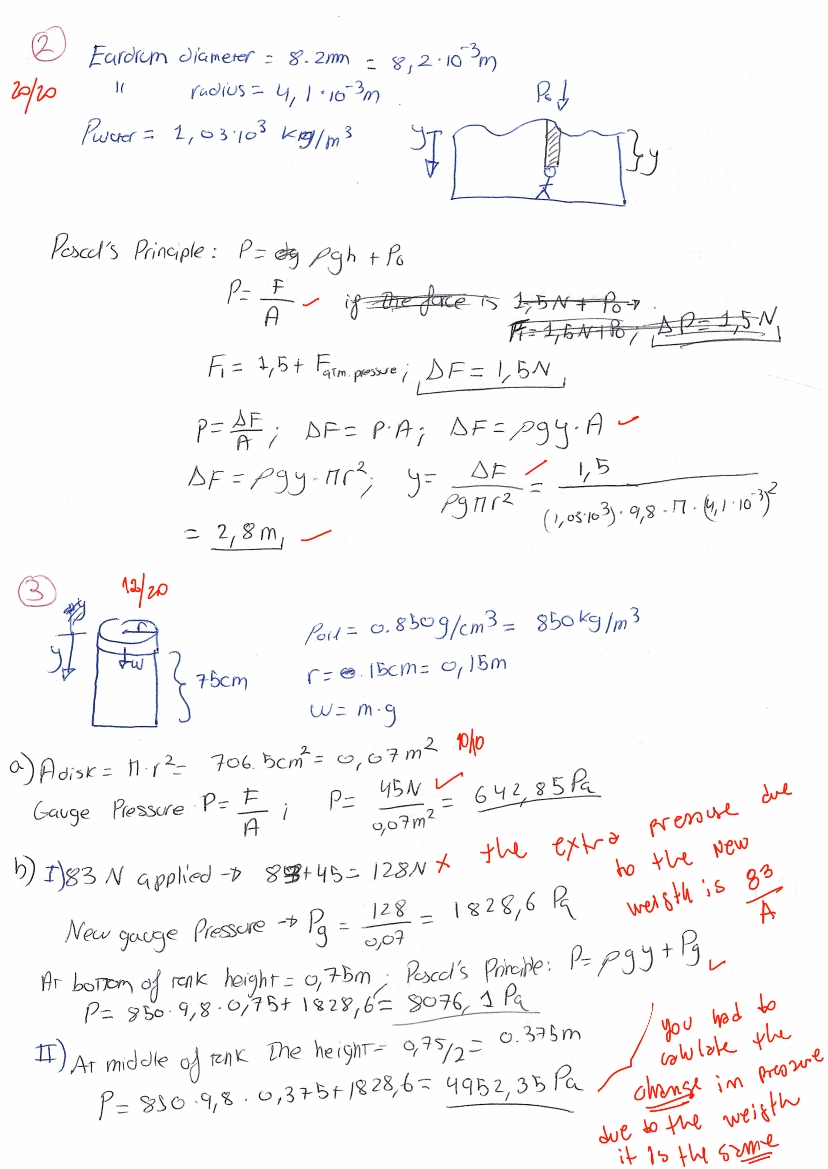 ② Eardrum diameter = 8.2mm = 8,2·10⁻³m
20/20 " radius = 4,1·10⁻³m
Pwater = 1,03·10³ kg/m³
P₀ ↓
y
y
Pascal's Principle: P = ρgh + P₀
P = F/A ✓ if the force is 1,5N + P₀ →
F₁ = 1,5N + P₀, ΔP = 1,5N
F₁ = 1,5 + F atm. pressure; ΔF = 1,5N
P = ΔF/A; ΔF = P·A; ΔF = ρgy·A ✓
ΔF = ρgy·πr²; y = ΔF/ρgπr² ✓ = 1,5/(1,03·10³)·9,8·π·(4,1·10⁻³)²
= 2,8m, ✓
③ 12/20
y r
↓w
75cm
ρoil = 0.850g/cm³ = 850kg/m³
r = 15cm = 0,15m
w = m·g
a) Adisk = π·r² = 706.5cm² = 0,07m² 10/10
Gauge Pressure P = F/A; P = 45N/0,07m² ✓ = 642,85Pa
b) I) 83 N applied → 83+45 = 128N × the extra pressure due to the new weigth is 83/A
New gauge Pressure → Pg = 128/0,07 = 1828,6 Pa
At bottom of tank height = 0,75m; Pascal's Principle: P = ρgy + Pg ✓
P = 850·9,8·0,75 + 1828,6 = 8076,1 Pa
II) At middle of tank the height = 0,75/2 = 0.375m
P = 850·9,8·0,375 + 1828,6 = 4952,35 Pa
you had to
calculate the
change in pressure
due to the weigth
it is the same